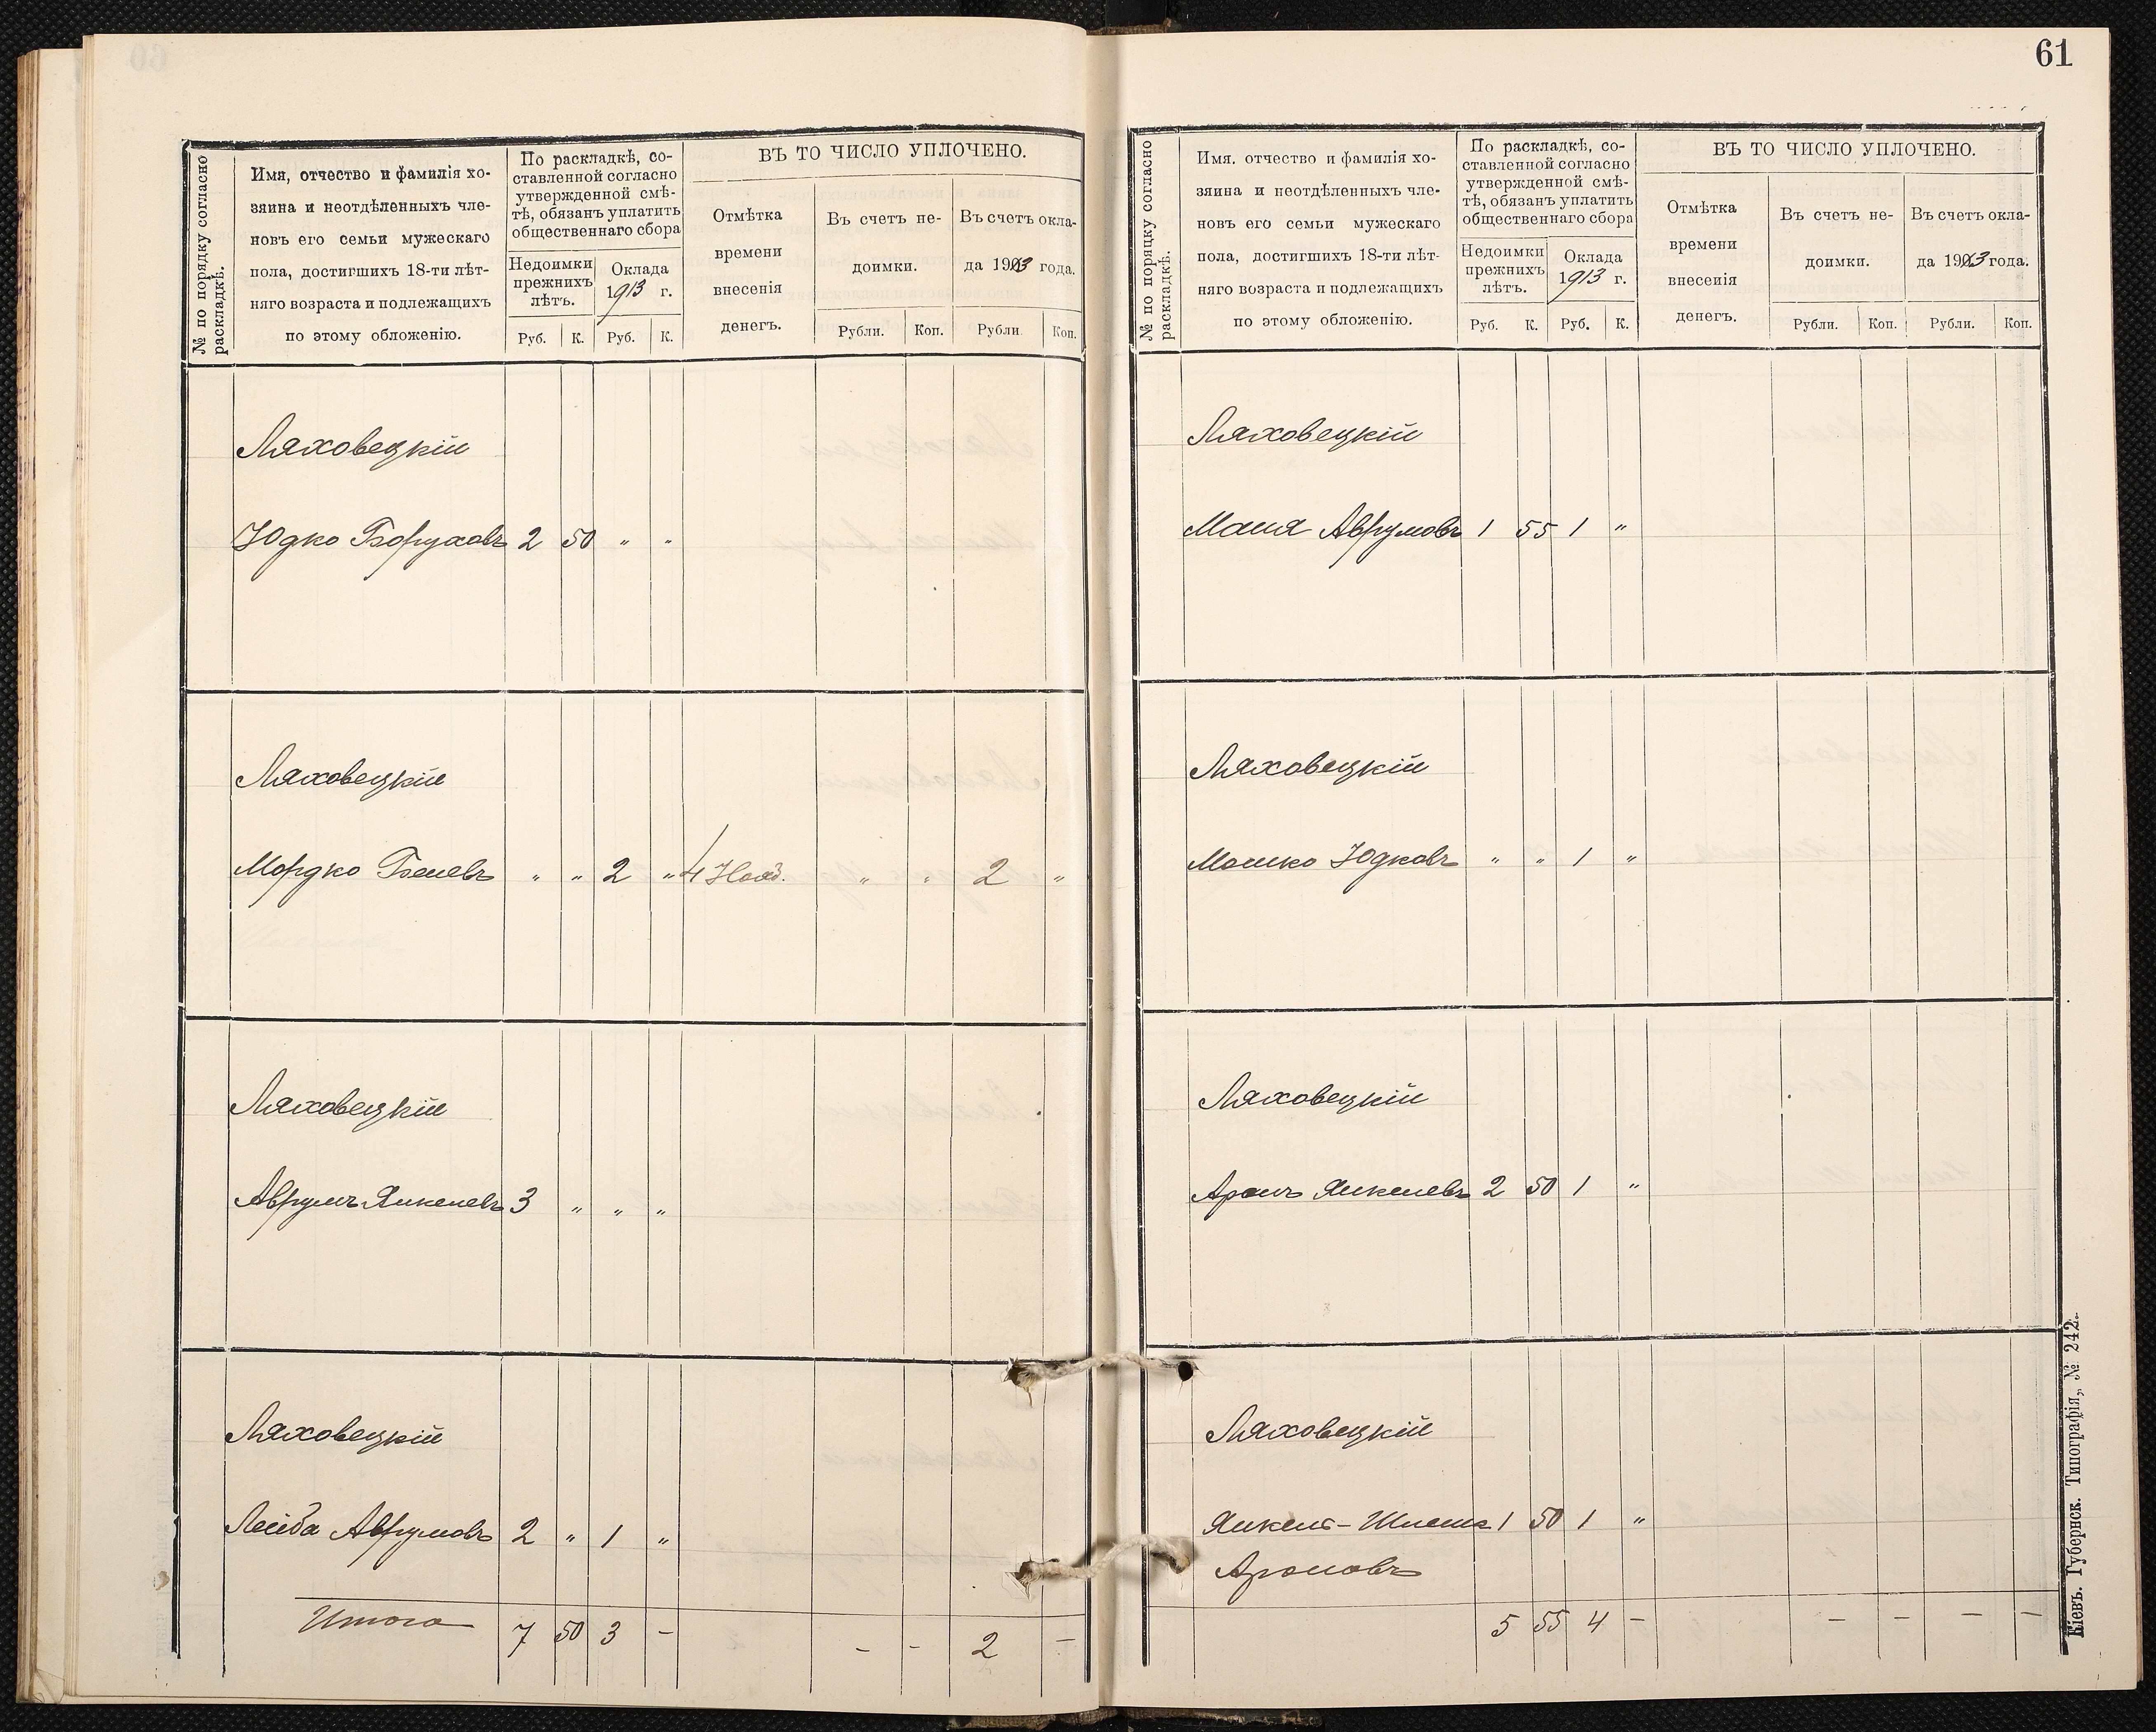 61
№ по порядку согласно
раскладкѣ.
Имя, отчество и фамилія хо-
зяина и неотдѣленныхъ чле-
новъ его семьи мужескаго
пола, достигшихъ 18-ти лѣт-
няго возраста и подлежащихъ
по этому обложенію.
По раскладкѣ, со-
ставленной согласно
утвержденной смѣ-
тѣ, обязанъ уплатить
общественнаго сбора
Недоимки
прежнихъ
лѣтъ.
Оклада
1913 г.
Руб. К. Руб. К.
ВЪ ТО ЧИСЛО УПЛОЧЕНО.
Отмѣтка
времени
внесенія
денегъ.
Въ счетъ не-
доимки.
Въ счетъ окла-
да 1913 года.
Рубли. Коп. Рубли Коп.
Ляховецкій
Юдко Боруховъ 2 50 " "
Ляховецкій
Мордко Беневъ " " 2 " 4 Нояб. " " 2 "
Ляховецкій
Аврумъ Янкелевъ 3 " " "
Ляховецкій
Лейба Аврумовъ 2 " 1 "
Итого 7 50 3 - - - 2 -
№ по порядку согласно
раскладкѣ.
Имя. отчество и фамилія хо-
зяина и неотдѣленныхъ чле-
новъ его семьи мужескаго
пола, достигшихъ 18-ти лѣт-
няго возраста и подлежащихъ
по этому обложенію.
По раскладкѣ, со-
ставленной согласно
утвержденной смѣ-
тѣ, обязанъ уплатить
общественнаго сбора
Недоимки
прежнихъ
лѣтъ.
Оклада
1913 г.
Руб. К. Руб. К.
ВЪ ТО ЧИСЛО УПЛОЧЕНО.
Отмѣтка
времени
внесенія
денегъ.
Въ счетъ не-
доимки.
Въ счетъ окла-
да 1913 года.
Рубли. Коп. Рубли. Коп.
Ляховецкій
Маня Аврумовъ 1 55 1 "
Ляховецкій
Мошко Юдковъ " " 1 "
Ляховецкій
Аронъ Янкелевъ 2 50 1 "
Ляховецкій
Янкель-Шлема 1 50 1 "
Ароновъ
5 55 4 - - - - -
Кіевъ. Губернск. Типографія,, № 242.